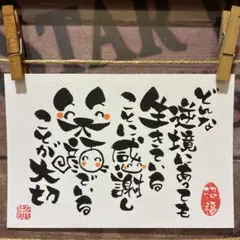 どんな
逆境にあっても
生きている
ことに感謝し
笑顔でいる
ことが大切
招福